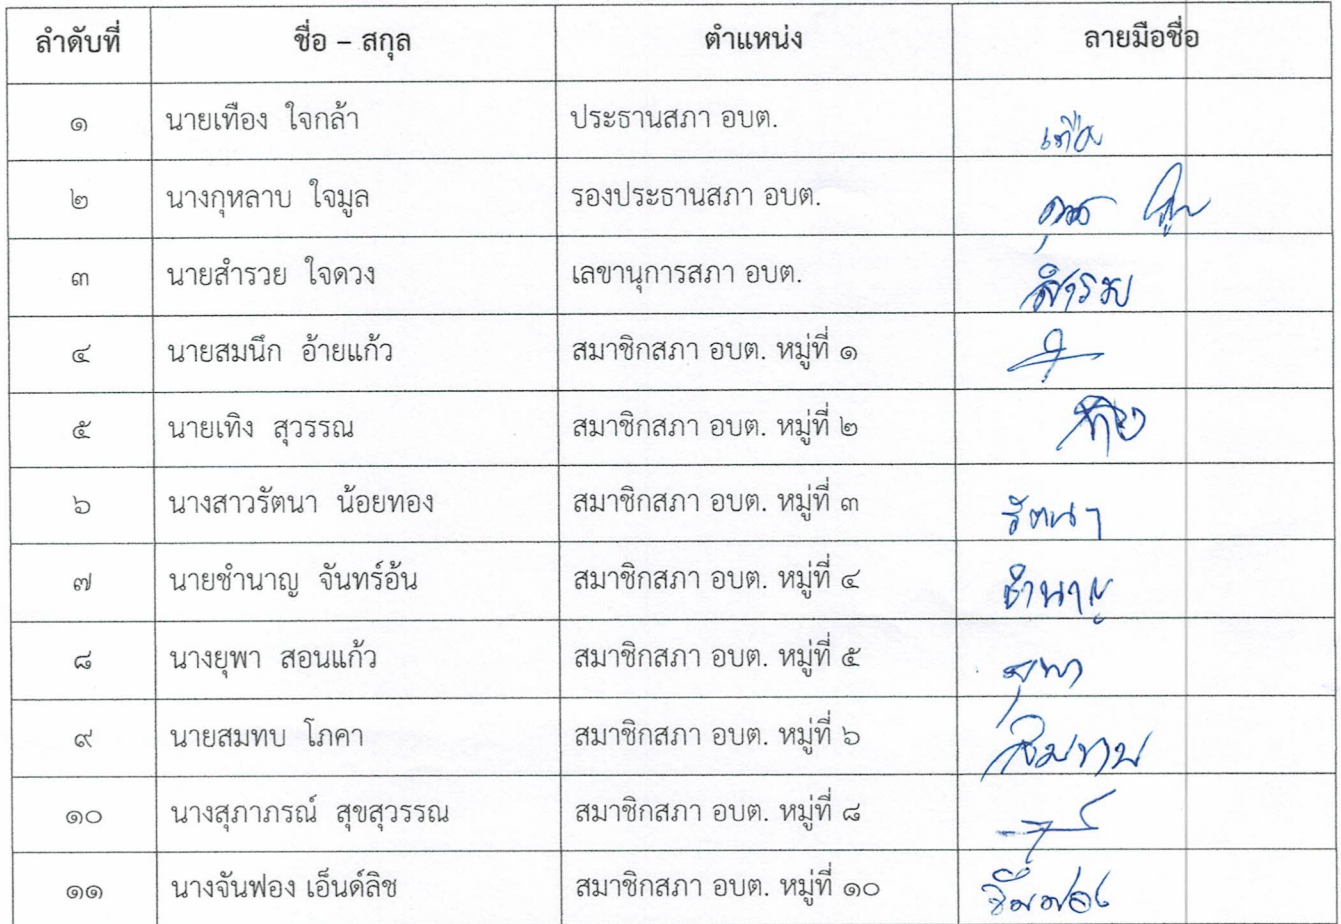 ลำดับที่ ชื่อ – สกุล ตำแหน่ง ลายมือชื่อ
๑ นายเทือง ใจกล้า ประธานสภา อบต. เทือง
๒ นางกุหลาบ ใจมูล รองประธานสภา อบต.
๓ นายสำรวย ใจดวง เลขานุการสภา อบต. สำรวย
๔ นายสมนึก อ้ายแก้ว สมาชิกสภา อบต. หมู่ที่ ๑
๕ นายเทิง สุวรรณ สมาชิกสภา อบต. หมู่ที่ ๒
๖ นางสาวรัตนา น้อยทอง สมาชิกสภา อบต. หมู่ที่ ๓ รัตนา
๗ นายชำนาญ จันทร์อ้น สมาชิกสภา อบต. หมู่ที่ ๔ ชำนาญ
๘ นางยุพา สอนแก้ว สมาชิกสภา อบต. หมู่ที่ ๕ ยุพา
๙ นายสมทบ โภคา สมาชิกสภา อบต. หมู่ที่ ๖
๑๐ นางสุภาภรณ์ สุขสุวรรณ สมาชิกสภา อบต. หมู่ที่ ๘
๑๑ นางจันฟอง เอ็นด์ลิช สมาชิกสภา อบต. หมู่ที่ ๑๐